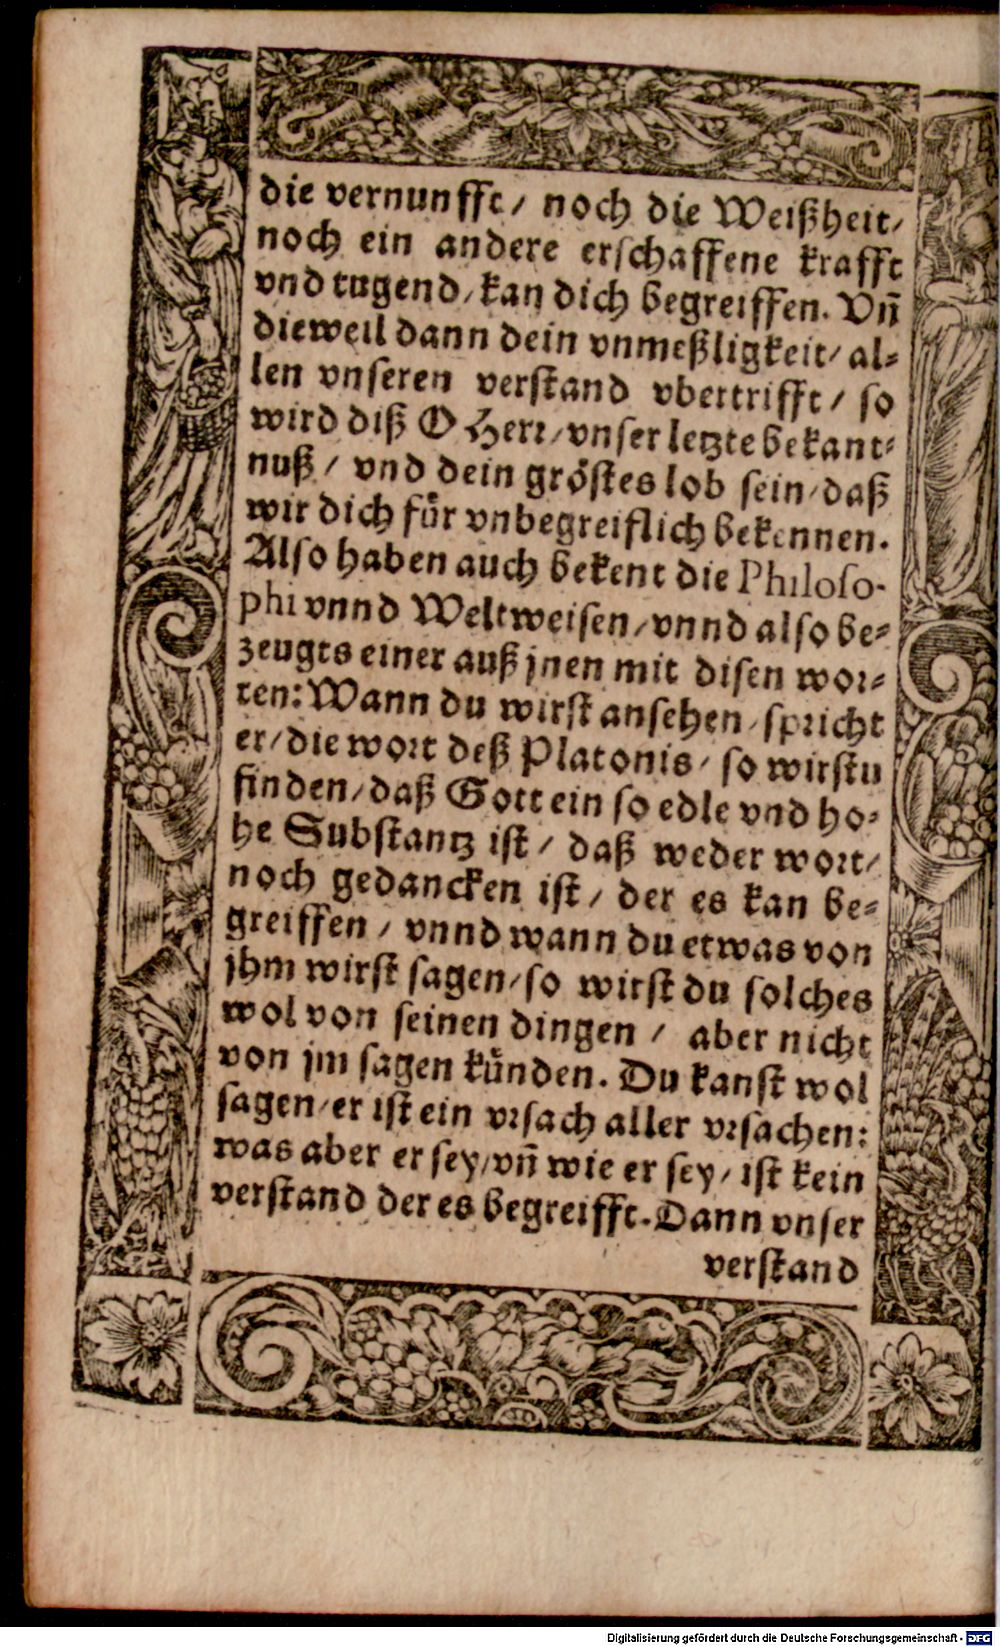 die vernunfft / noch die Weißheit /
noch ein andere erschaffene krafft
vnd tugend / kan dich begreiffen. Vñ
dieweil dann dein vnmeßligkeit / al=
len vnseren verstand vbertrifft / so
wird diß O Herr / vnser letzte bekant=
nuß / vnd dein gröstes lob sein / daß
wir dich für vnbegreiflich bekennen.
Also haben auch bekent die Philoso-
phi vnnd Weltweisen / vnnd also be=
zeugts einer auß jnen mit disen wor=
ten: Wann du wirst ansehen / spricht
er / die wort deß Platonis / so wirstu
finden / daß Gott ein so edle vnd ho=
he Substantz ist / daß weder wort /
noch gedancken ist / der es kan be=
greiffen / vnnd wann du etwas von
jhm wirst sagen / so wirst du solches
wol von seinen dingen / aber nicht
von jm sagen künden. Du kanst wol
sagen / er ist ein vrsach aller vrsachen:
was aber er sey / vñ wie er sey / ist kein
verstand der es begreifft. Dann vnser
verstand
Digitalisierung gefördert durch die Deutsche Forschungsgemeinschaft - DFG